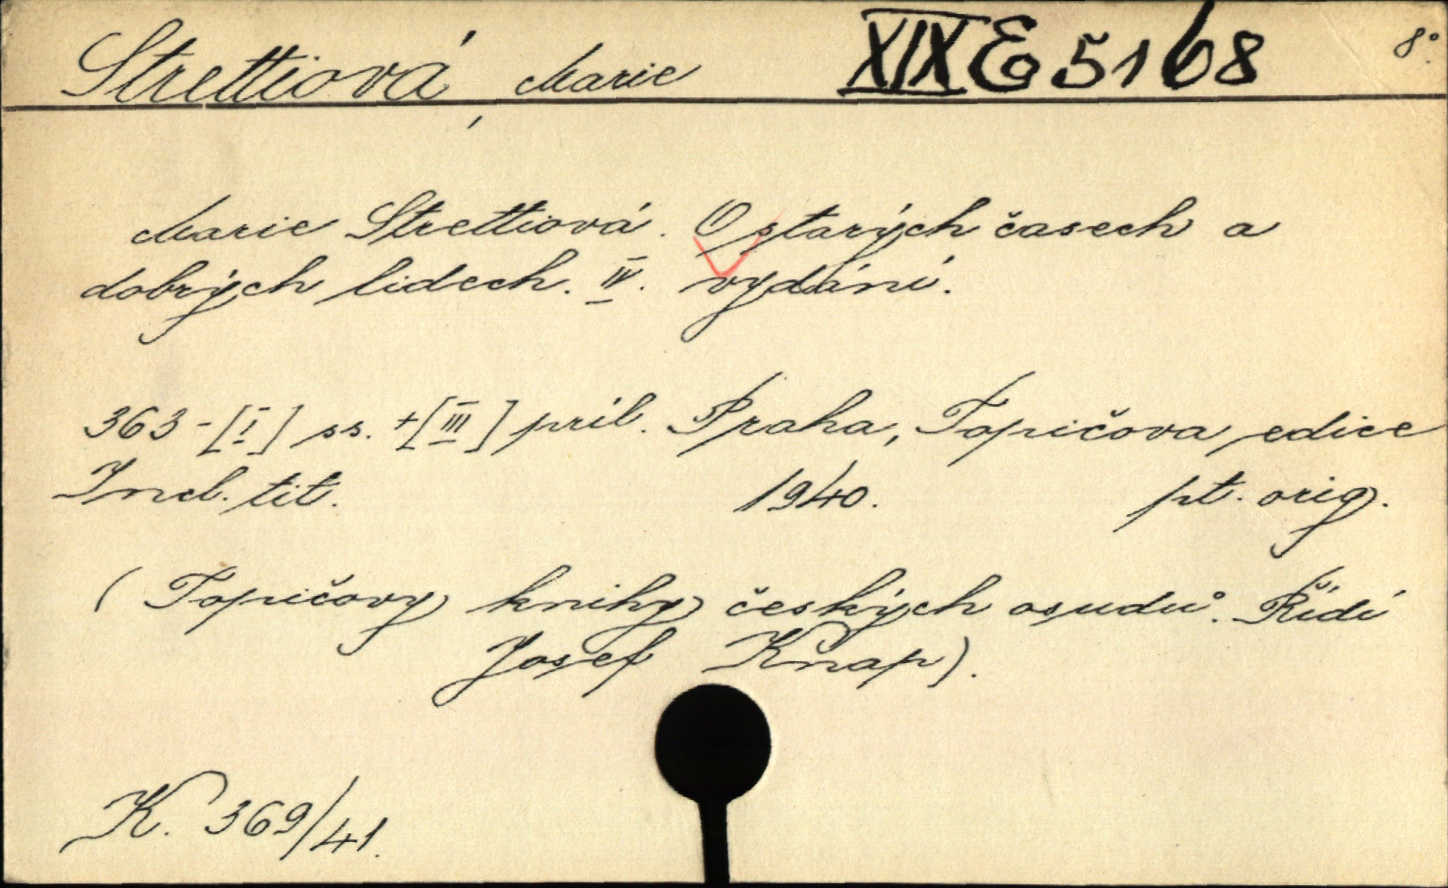 Strettiová, Marie XIX E 5168 8°.
Marie Strettiová. O starých časech a
dobrých lidech. IV. vydání.
363-[I] ss. +[III] príl. Praha, Topičova edice
Incl. tit. 1940. pt. orig.
(Topičovy knihy českých osudů. Řídí
Josef Knap).
K. 369/41.